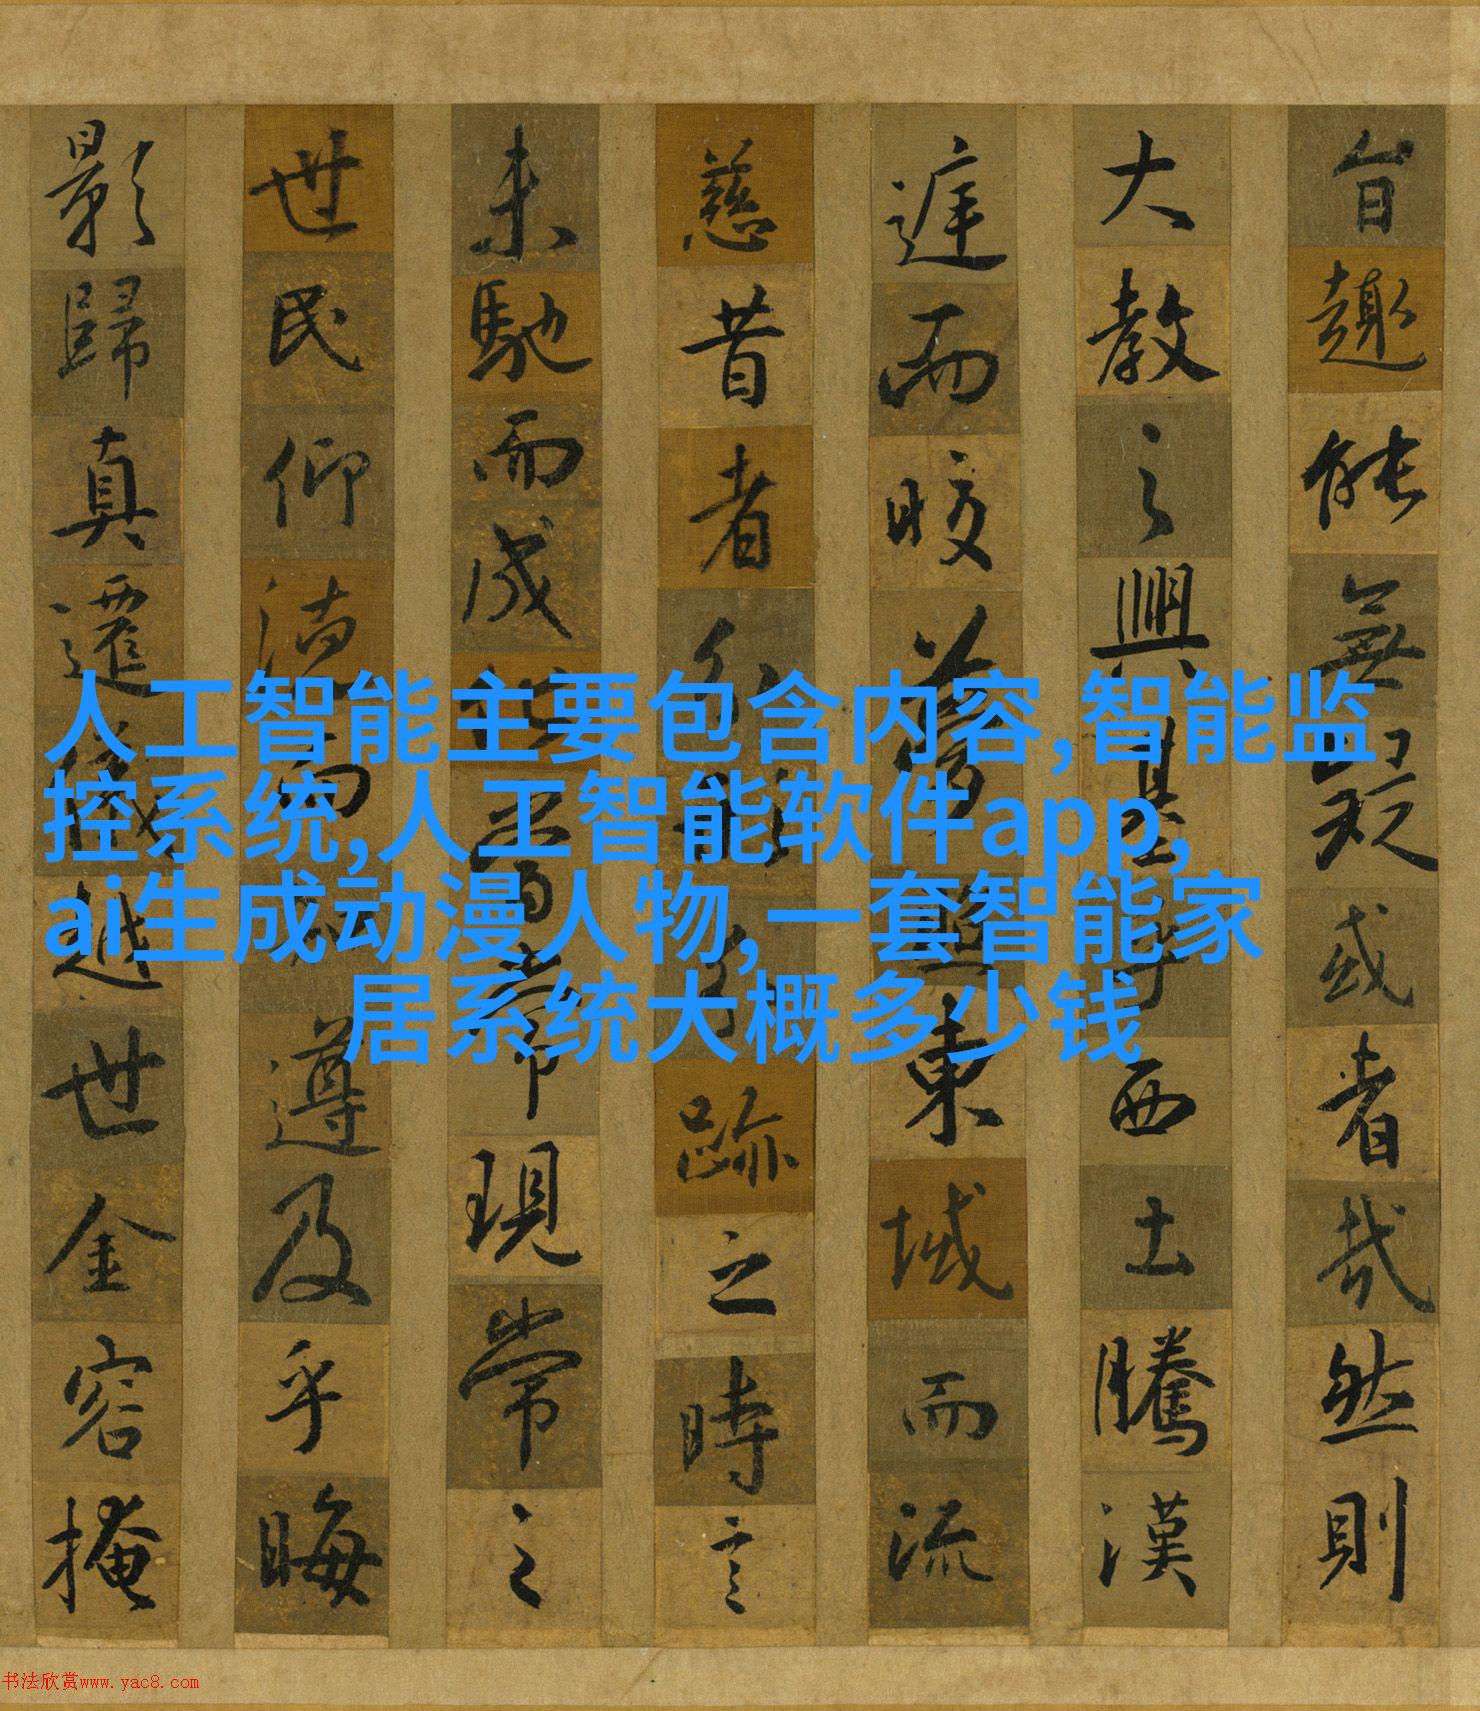 旨趣能無疑惑者哉然則
大教之興基乎西土騰漢
庭而皎夢照東域而流
慈昔者分形分跡之時言
未馳而成世當常現常之
世民仰德而知遵及乎晦
影歸真遷儀越世金容掩
人工智能主要包含内容,智能监
控系统,人工智能软件app,
ai生成动漫人物,一套智能家
居系统大概多少钱
书法欣赏www.yac8.com